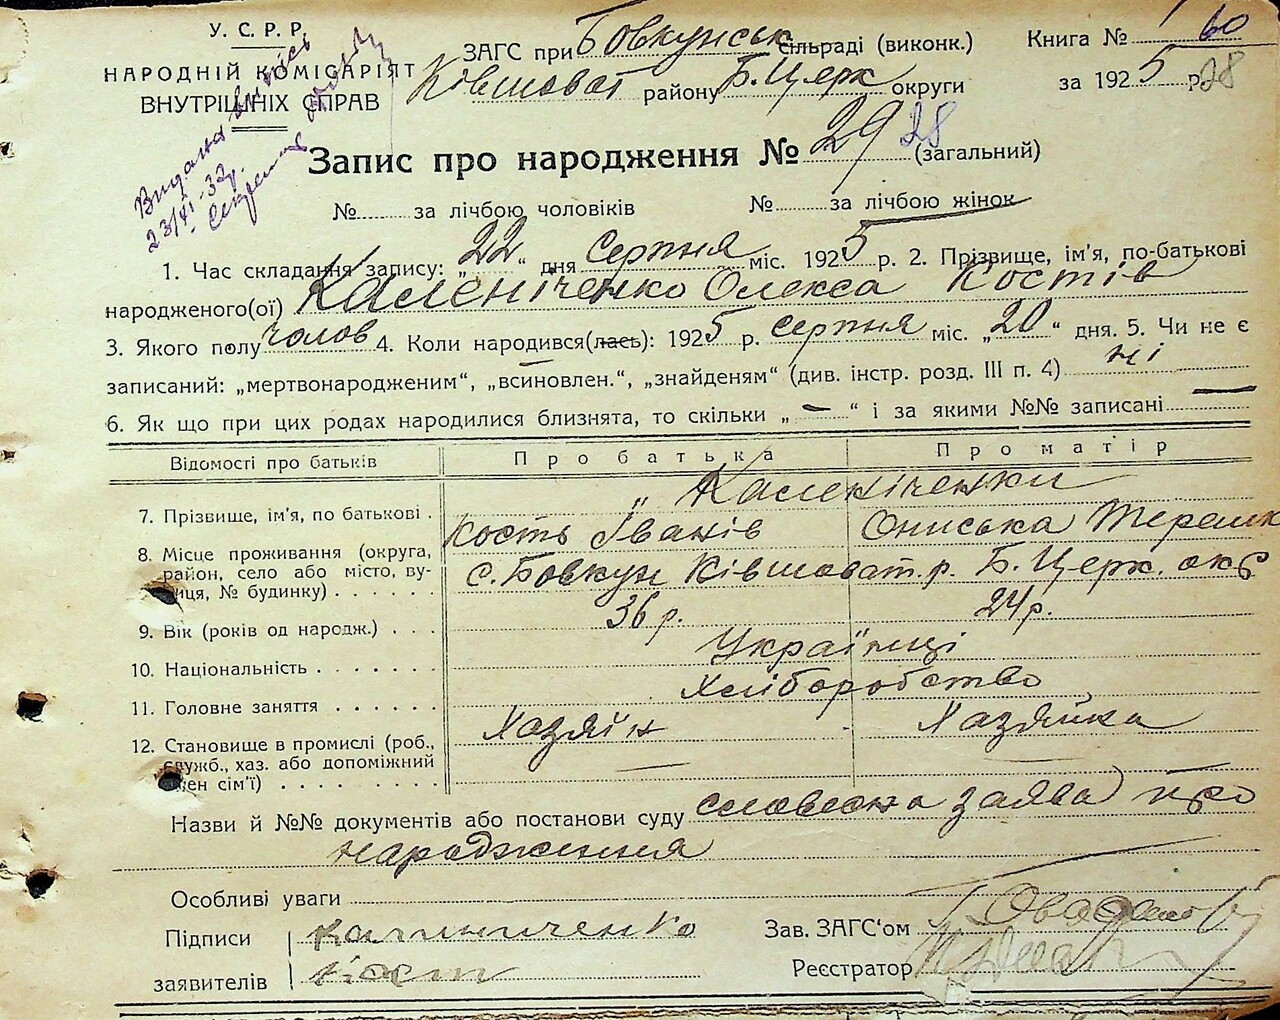 У. С. Р. Р.
НАРОДНІЙ КОМІСАРІЯТ
ВНУТРІШНІХ СПРАВ
Видана витпись
23/VI-32р.
Секретар
ЗАГС при Бовкунськ сільраді (виконк.)
Ківшоват району Б. Церк округи
Книга № 60
за 1925 р. 28
Запис про народження № 29 28 (загальний)
№ за лічбою чоловіків № за лічбою жінок
1. Час складання запису: „22“ дня Серпня міс. 1925 р. 2. Прізвище, ім'я, по-батькові
народженого(ої) Каленіченко Олекса Костів
3. Якого полу чолов 4. Коли народився(лась): 1925 р. серпня міс. „20“ дня. 5. Чи не є
записаний: „мертвонародженим“, „всиновлен.“, „знайденям“ (див. інстр. розд. III п. 4) ні
6. Як що при цих родах народилися близнята, то скільки „ — “ і за якими №№ записані —
Відомості про батьків Про батька Про матір
7. Прізвище, ім'я, по батькові . „ Каленіченки
Кость Іванів Ониська Терешк
8. Місце проживання (округа, район, село або місто, вулиця, № будинку) с. Бовкун Ківшоват. р. Б. Церк. окр
9. Вік (років од народж.) . . . 36 р. 24 р.
10. Національність . . . . . . Українці
11. Головне заняття . . . . . . Хліборобство
12. Становище в промислі (роб., служб., хаз. або допоміжний член сім'ї) Хазяїн Хазяйка
Назви й №№ документів або постанови суду словесна заява про
народження
Особливі уваги
Підписи Калиниченко
заявителів Кост
Зав. ЗАГС'ом
Реєстратор